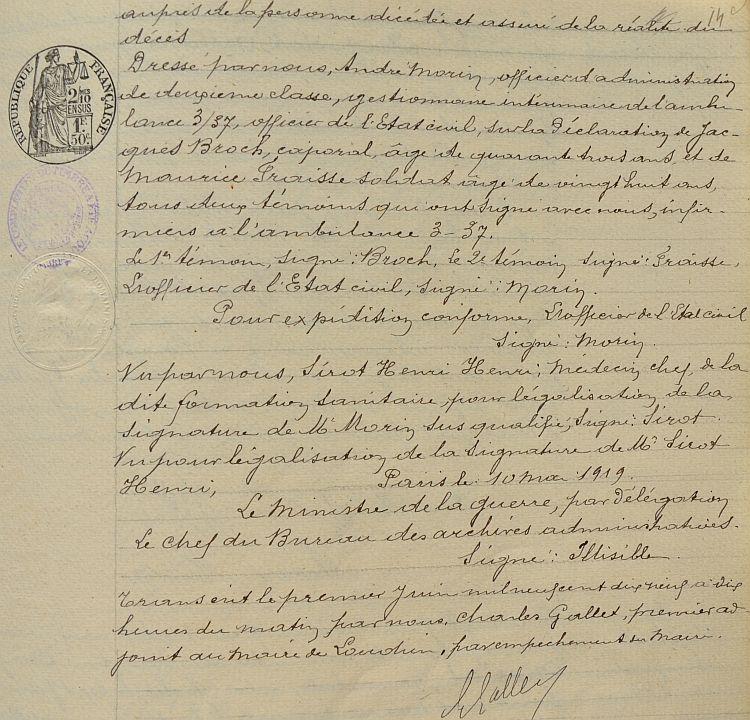 14
auprès de la personne décédée et assuré de la réalité du
décès
Dressé par nous, André Morin, officier d'administration
de deuxième classe, gestionnaire intérimaire de l'ambu-
lance 3/37, officier de l'Etat civil, sur la Déclaration de Jac-
ques Broch, caporal, âgé de quarante trois ans, et de
Maurice Fraisse soldat âgé de vingt huit ans,
tous deux témoins qui ont signé avec nous, infir-
miers à l'ambulance 3-37.
Le 1er témoin, signé: Broch, le 2e témoin signé: Fraisse,
L'officier de l'Etat civil, signé: Morin.
Pour expédition conforme, L'officier de l'Etat civil
Signé: Morin.
Vu par nous, Sirot Henri Henri, Médecin chef de la
dite formation sanitaire pour légalisation de la
signature de Mr Morin sus qualifié, Signé: Sirot.
Vu pour légalisation de la Signature de Mr Sirot
Henri, Paris le: 10 Mai 1919.
Le Ministre de la guerre, par Délégation
Le chef du Bureau des archives administratives.
Signé: Illisible.
Transcrit le premier Juin mil neuf cent dix neuf à dix
heures du matin par nous, Charles Gallet, premier ad-
joint au Maire de Loudun, par empêchement du Maire.
REPUBLIQUE FRANÇAISE
2/10
EN SUS
1F
50c